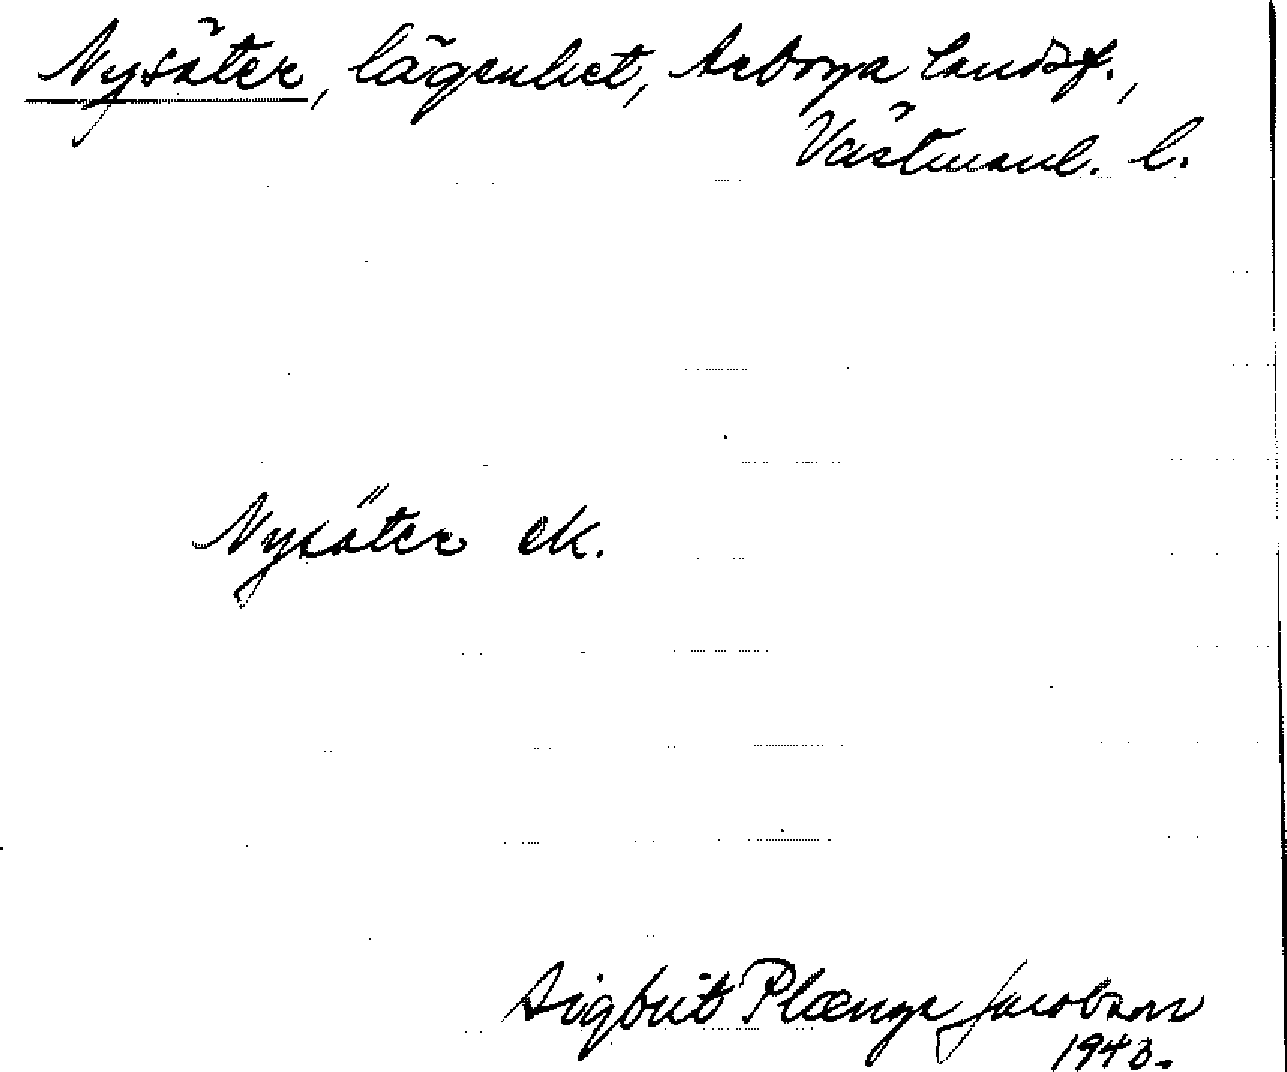 Nysäter, lägenhet, Arboga landsf.,
Västmanl. l.
Nysäter ek.
Sigbrit Plænge Jacobson
1940.